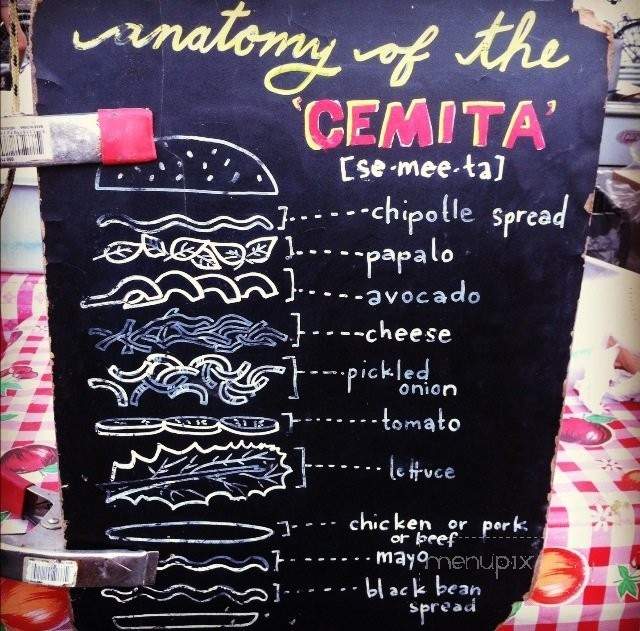 anatomy of the
'CEMITA'
[se-mee-ta]
chipotle spread
papalo
avocado
cheese
pickled
onion
tomato
lettuce
chicken or pork
or beef
mayo
menupix
black bean
spread